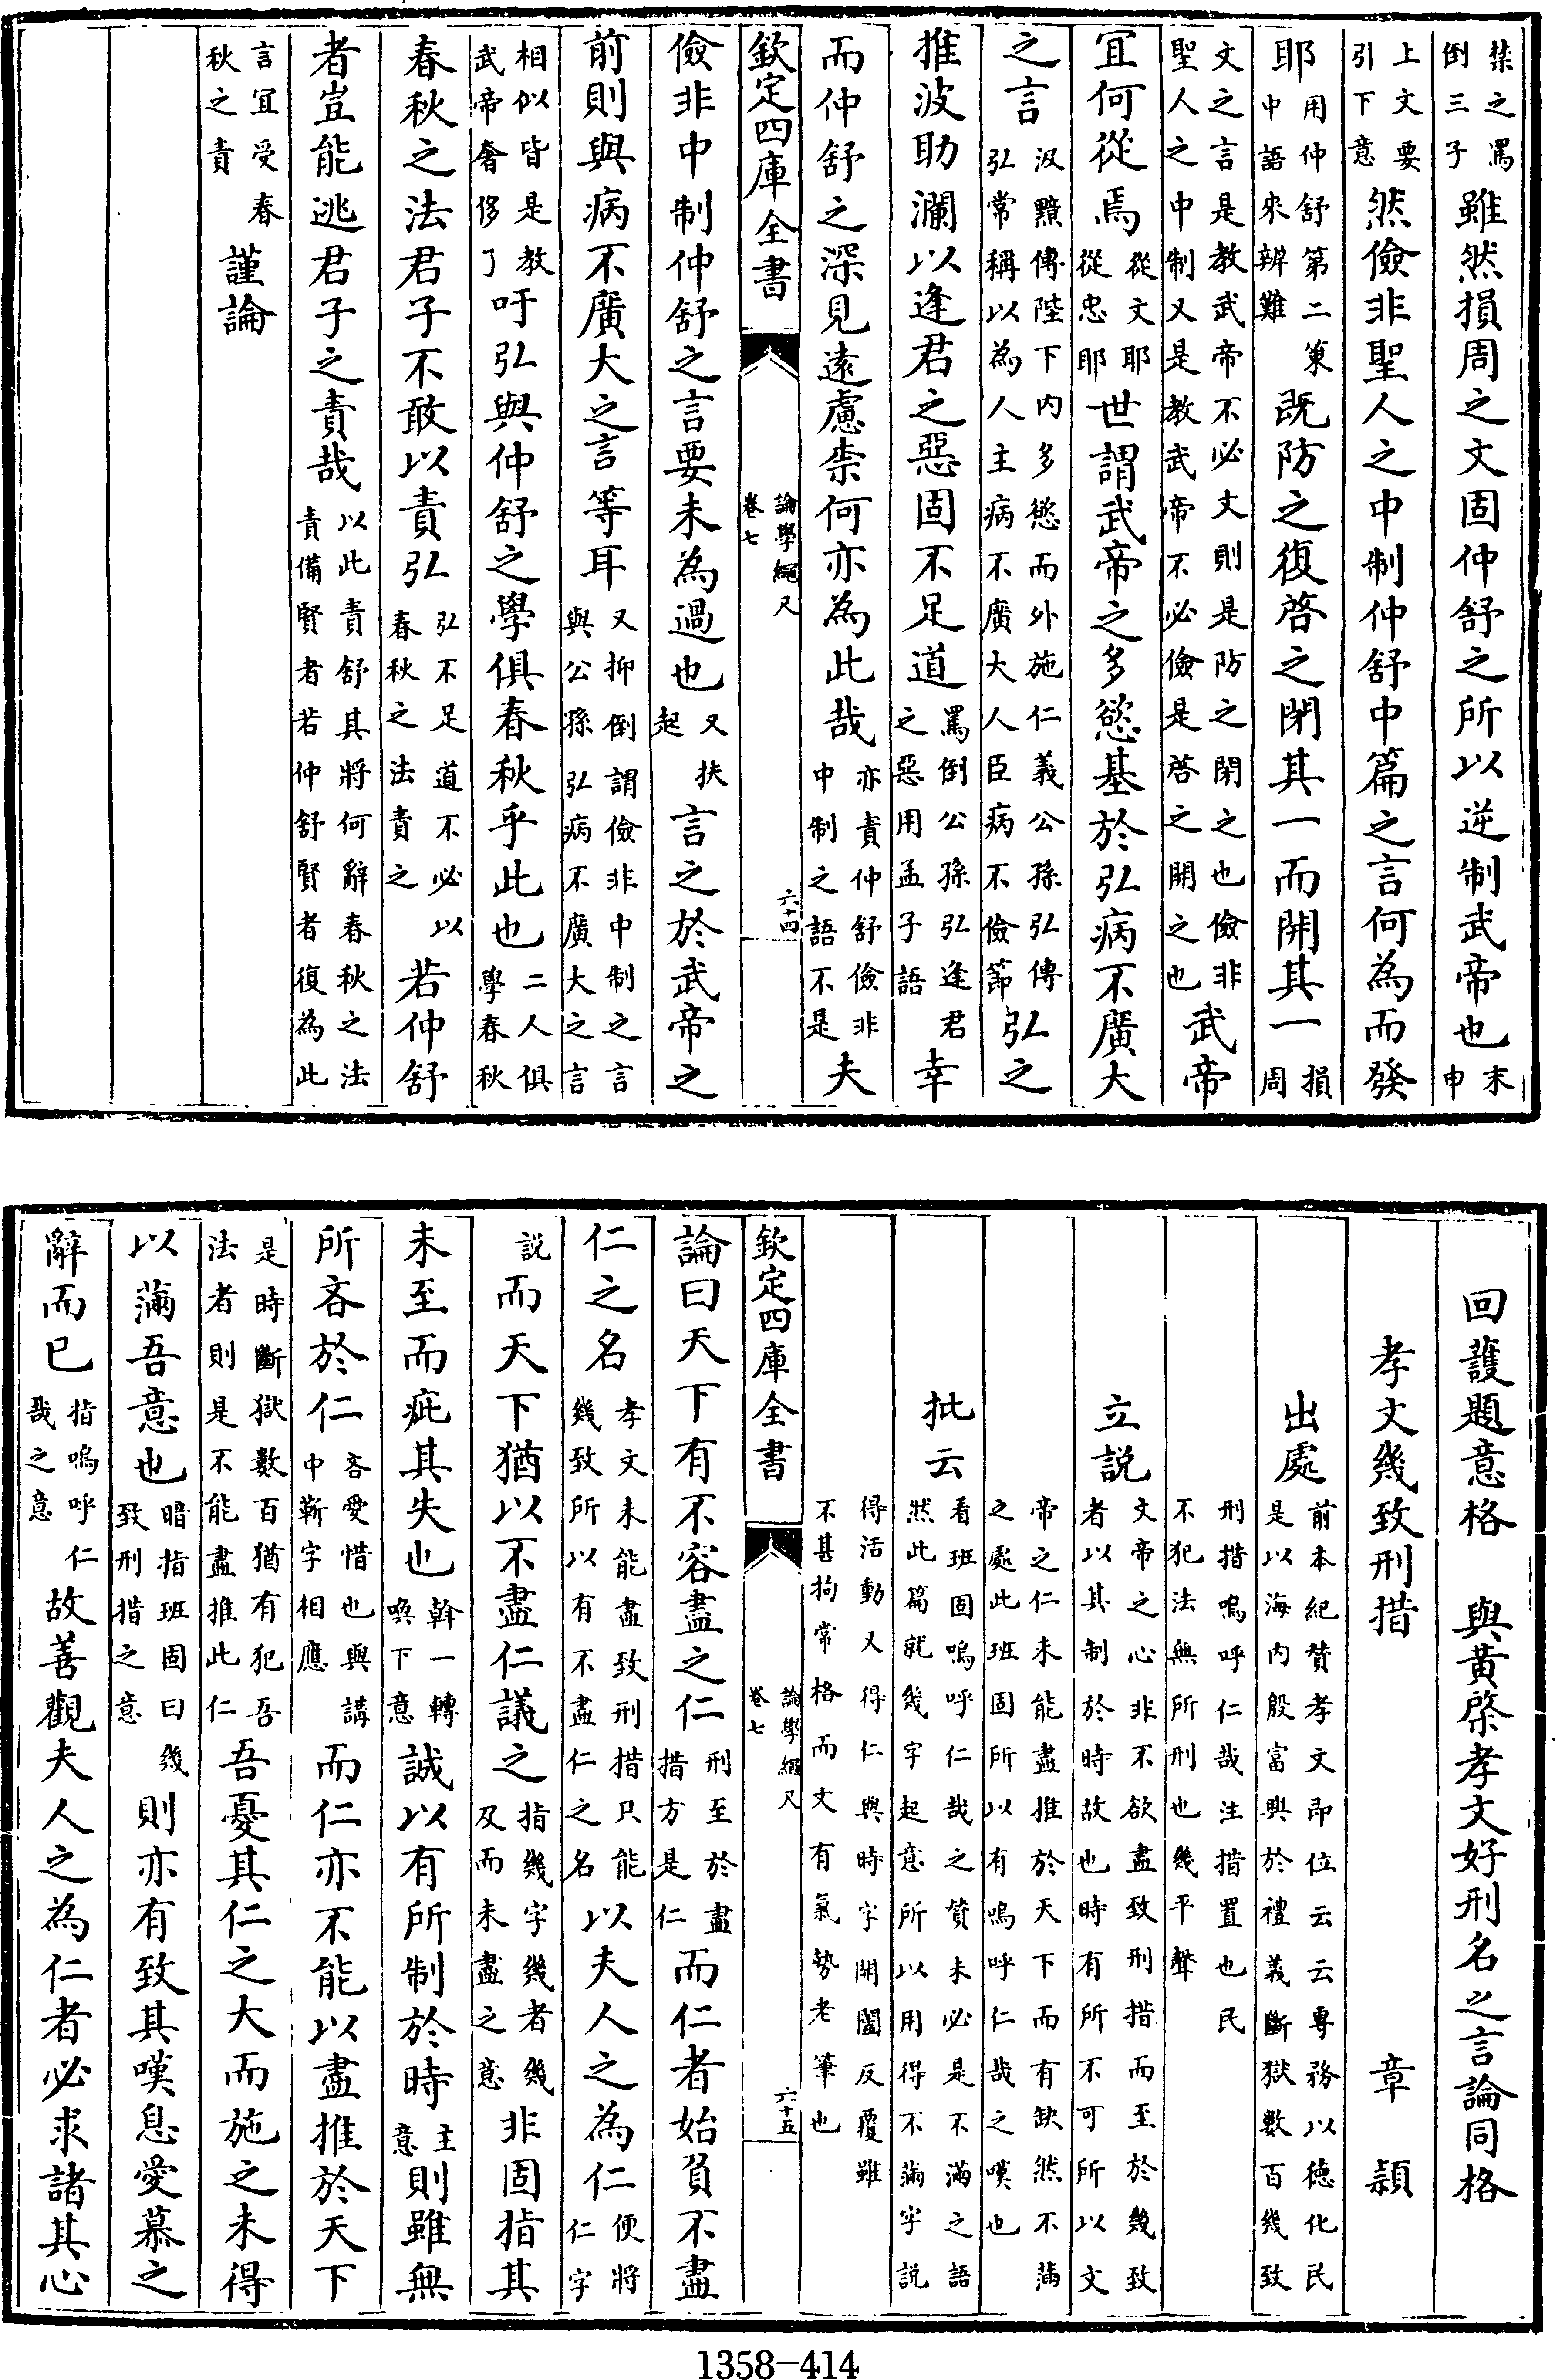 禁之罵倒三子雖然損周之文固仲舒之所以逆制武帝也末申
上文要引下意然儉非聖人之中制仲舒中篇之言何為而發
耶用仲舒第二策中語來辨難既防之復啓之閉其一而開其一損周
文之言是教武帝不必文則是防之閉之也儉非聖人之中制又是教武帝不必儉是啓之開之也武帝
宜何從焉從文耶從忠耶世謂武帝之多慾基於弘病不廣大
之言汲黯傳陛下内多慾而外施仁義公孫弘傳弘常稱以為人主病不廣大人臣病不儉節弘之
推波助瀾以逢君之惡固不足道罵倒公孫弘逢君之惡用孟子語幸
而仲舒之深見遠慮柰何亦為此哉亦責仲舒儉非中制之語不是夫
欽定四庫全書 論學繩尺卷七 六十四
儉非中制仲舒之言要未為過也又扶起言之於武帝之
前則與病不廣大之言等耳又抑倒謂儉非中制之言與公孫弘病不廣大之言
相似皆是教武帝奢侈了吁弘與仲舒之學俱春秋乎此也二人俱學春秋
春秋之法君子不敢以責弘弘不足道不必以春秋之法責之若仲舒
者豈能逃君子之責哉以此責舒其將何辭春秋之法責備賢者若仲舒賢者復為此
言宜受春秋之責謹論
回護題意格 與黄棨孝文好刑名之言論同格
孝文幾致刑措 章頴
出處前本紀贊孝文即位云云專務以德化民是以海内殷富興於禮義斷獄數百幾致
刑措嗚呼仁哉注措置也民不犯法無所刑也幾平聲
立説文帝之心非不欲盡致刑措而至於幾致者以其制於時故也時有所不可所以文
帝之仁未能盡推於天下而有缺然不滿之處此班固所以有嗚呼仁哉之嘆也
批云看班固嗚呼仁哉之贊未必是不滿之語然此篇就幾字起意所以用得不滿字説
得活動又得仁與時字開闔反覆雖不甚拘常格而文有氣勢老筆也
欽定四庫全書 論學繩尺卷七 六十五
論曰天下有不容盡之仁刑至於盡措方是仁而仁者始負不盡
仁之名孝文未能盡致刑措只能幾致所以有不盡仁之名以夫人之為仁便將仁字
説而天下猶以不盡仁議之指幾字幾者幾及而未盡之意非固指其
未至而疵其失也幹一轉喚下意誠以有所制於時主意則雖無
所吝於仁吝愛惜也與講中靳字相應而仁亦不能以盡推於天下
是時斷獄數百猶有犯吾法者則是不能盡推此仁吾憂其仁之大而施之未得
以滿吾意也暗指班固曰幾致刑措之意則亦有致其嘆息愛慕之
辭而已指嗚呼仁哉之意故善觀夫人之為仁者必求諸其心
1358-414